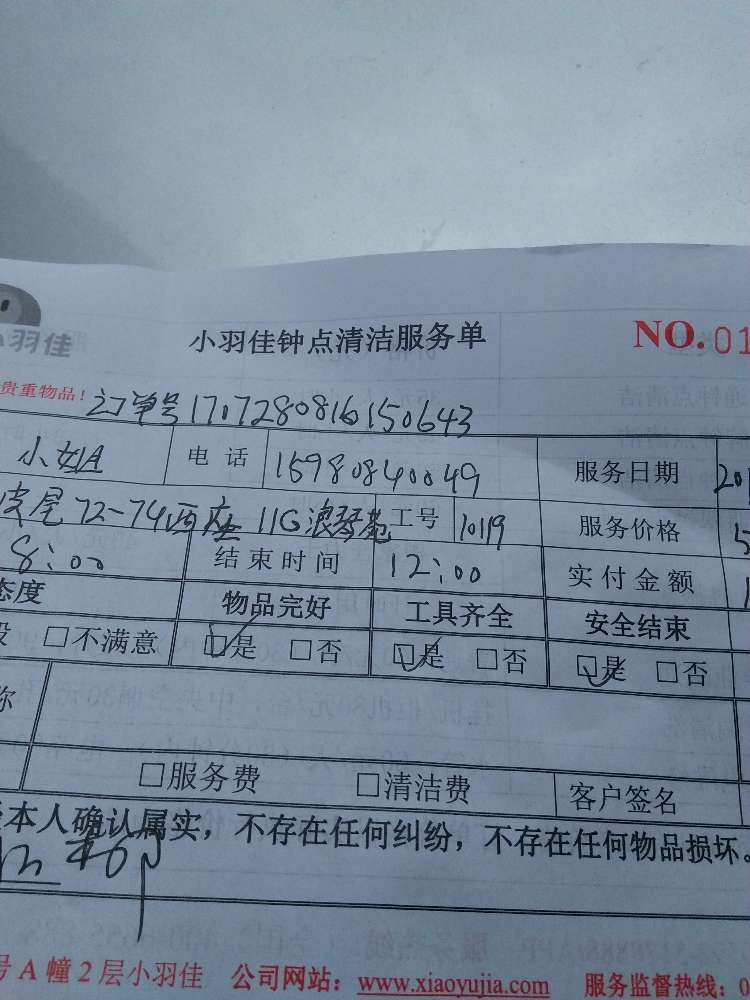 小羽佳
小羽佳钟点清洁服务单
NO.01
贵重物品！
订单号1707280816150643
小姐 电话 15980840049 服务日期 201
尾72-74西座 11G浪琴苑 工号 10119 服务价格 5
8:00 结束时间 12:00 实付金额 1
态度 物品完好 工具齐全 安全结束
□不满意 □是 □否 □是 □否 □是 □否
称
□服务费 □清洁费 客户签名
本人确认属实，不存在任何纠纷，不存在任何物品损坏。
号A幢2层小羽佳 公司网站：www.xiaoyujia.com 服务监督热线：0